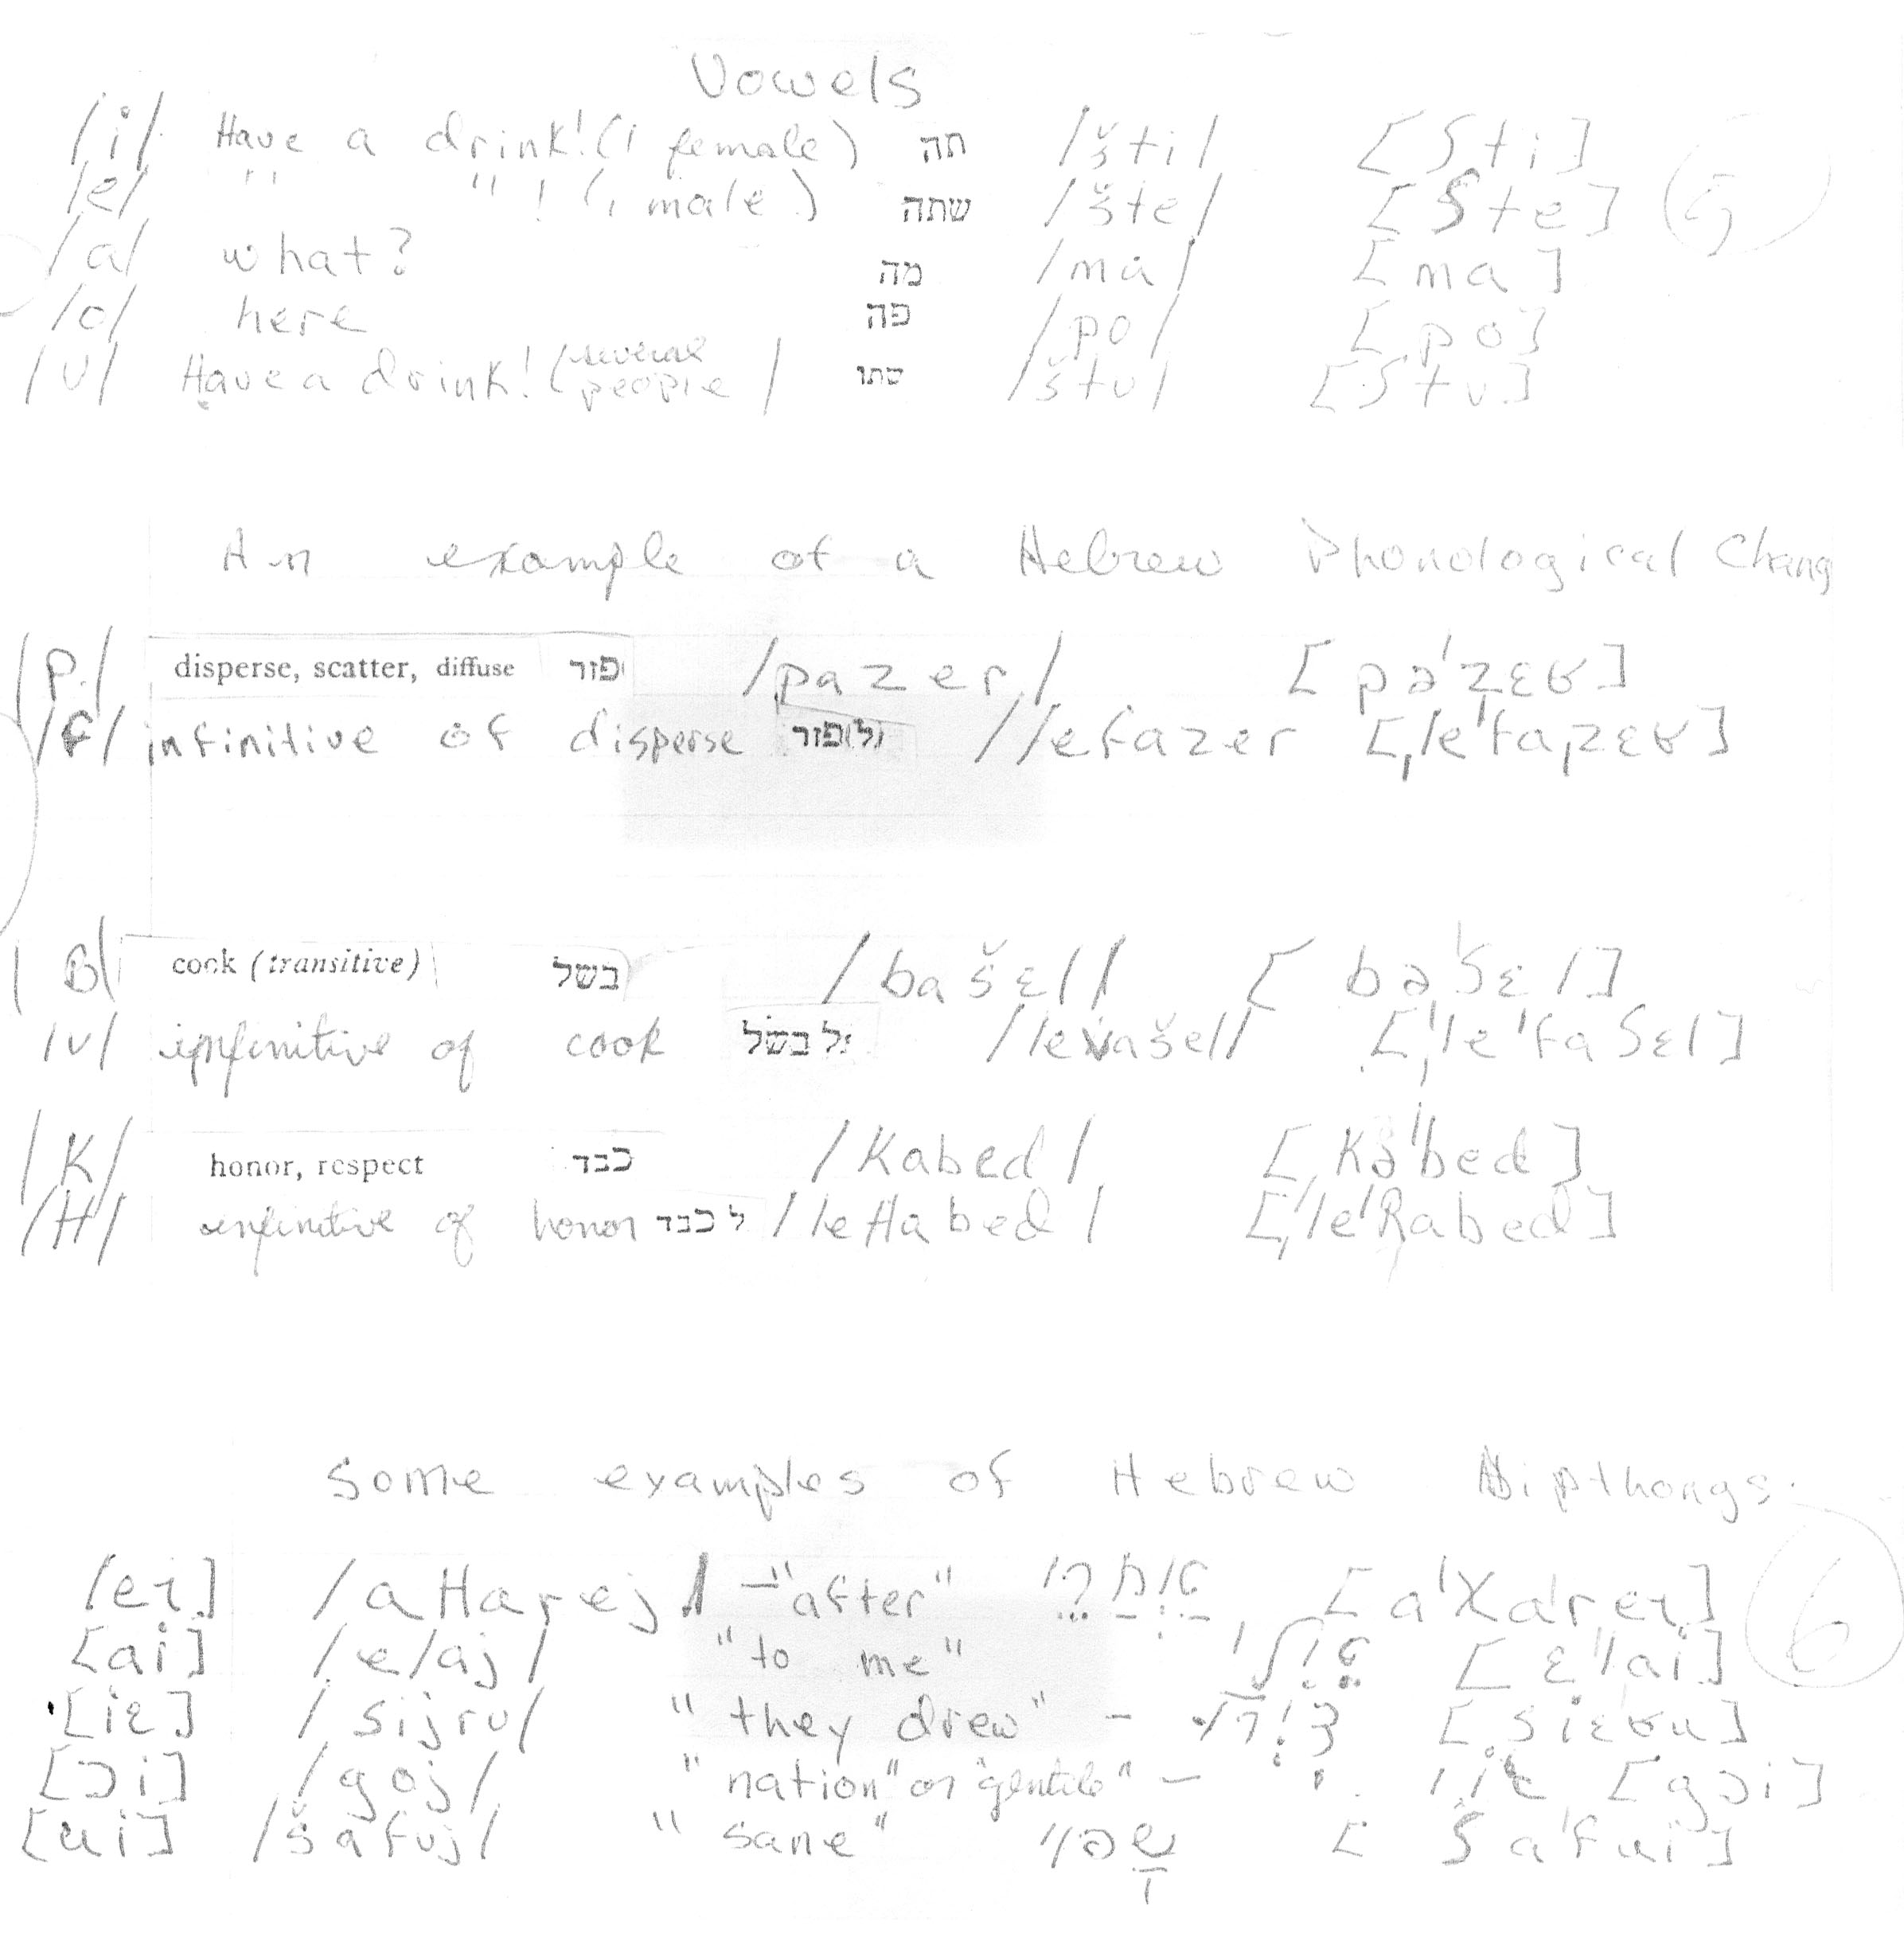 Vowels
/i/ Have a drink! (1 female) תה /šti/ [ʃti]
/e/ " " ! (1 male) שתה /šte/ [ʃte] 5
/a/ what? מה /ma/ [ma]
/o/ here פה /po/ [po]
/u/ Have a drink! (several people) שתו /štu/ [ʃtu]
An example of a Hebrew Phonological Chang
/p/ disperse, scatter, diffuse פזר /pazer/ [pə'zɛʁ]
/f/ infinitive of disperse /lefazer [,le'fa,zɛʁ]
/B/ cook (transitive) בשל /bašɛl/ [bə'ʃɛl]
/v/ infinitive of cook ל בשל /levašel/ [,le'faʃɛl]
/K/ honor, respect כבד /Kabed/ [Kə'bed]
/H/ infinitive of honor ל כבד /leHabed/ [,le'Rabed]
Some examples of Hebrew Dipthongs.
[eɪ] /aHarej/ – "after" [a'Xa'reɪ] 6
[ai] /elaj/ "to me" [ɛ'lai]
[iɛ] /sijru/ "they drew" – [siɛʁu]
[ɔi] /goj/ "nation" or "gentile" – [gɔi]
[ui] /šafuj/ "sane" [ʃa'fui]